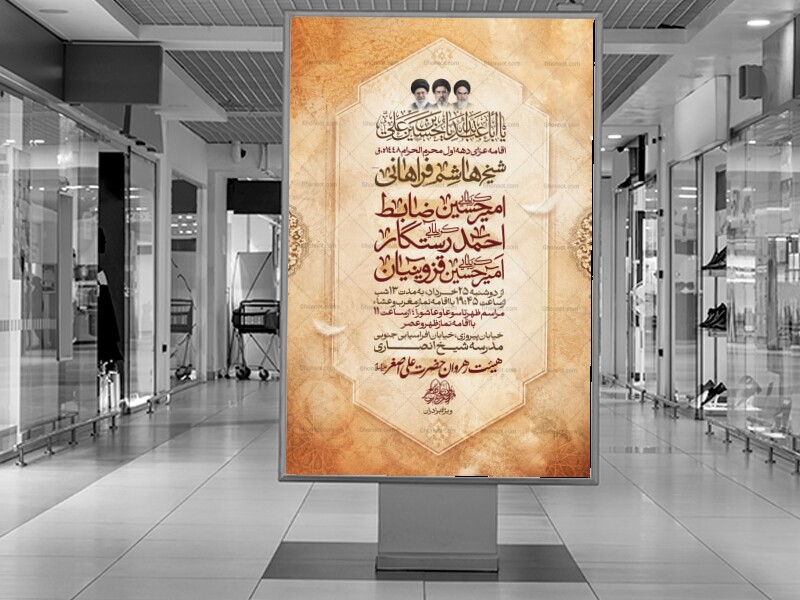 یا اباعبدالله یا حسین بن علی
اقامه عزای دهه اول محرم الحرام ۱۴۴۸ ه.ق
شیخ هاشم فراهانی
کربلایی
امیرحسین ضابط
کربلایی
احمد رستگار
کربلایی
امیرحسین قزوینیان
از دوشنبه ۲۵ خرداد، به مدت ۱۳ شب
از ساعت ۱۹:۴۵ با اقامه نماز مغرب و عشاء
مراسم ظهر تاسوعا و عاشورا؛ از ساعت ۱۱
با اقامه نماز ظهر و عصر
خیابان پیروزی، خیابان افراسیابی جنوبی
مدرسه شیخ انصاری
هیئت رهروان حضرت علی اصغر
ویژه برادران